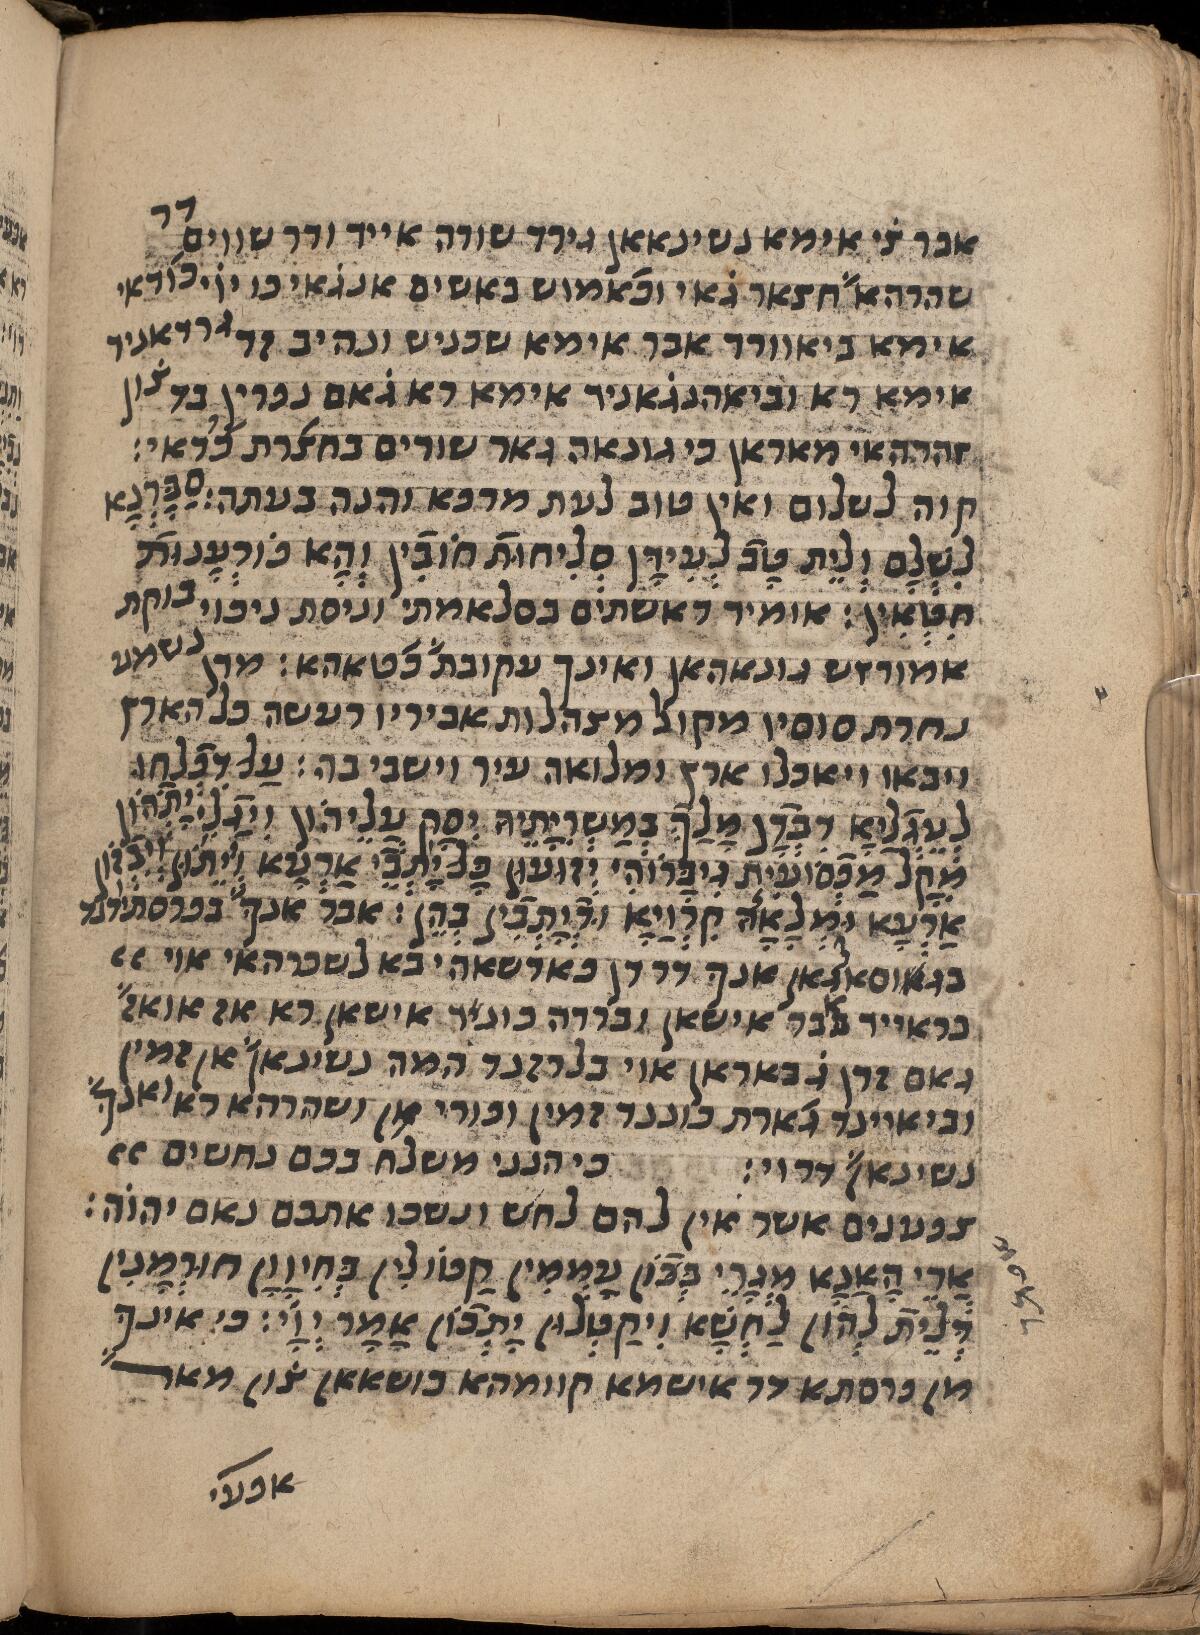 אבר צי אימא נשינאאן גירד שורה אייד ודר שווים דר
שהרהא חצאר גאי וכאמוש באשים אנגאי כו יוי כודאי
אימא ביאוורד אבר אימא שכניש ונהיב זד גרדאניד
אימא רא וביאהנגאניד אימא רא גאם נפרין בד צון
זהרהאי מאראן כי גונאה גאר שורים בחצרת כודאי:
קוה לשלום ואין טוב לעת מרפא והנה בעתה: סַבַרְנָא
לִשְׁלָם וְלֵית טָב לְעִידָן סְלִיחוּת חוֹבִין וְהָא פוּרְעָנוּת
חִטְאִין: אומיד דאשתים בסלאמתי וניסת ניכוי בוקת
אמורזש גונאהאן ואינך עקובת כטאהא: מדן נשמע
נחרת סוסיו מקול מצהלות אביריו רעשה כל הארץ
ויבאו ויאכלו ארץ ומלואה עיר וישבי בה: עַל דִּפְלָחוּ
לְעֶגְלַיָא דִבְדָן מַלְכָּא בְּמַשִרְיָתֵיהּ יִסַק עֲלֵיהוֹן וְיַגְלֵי יָתְהוֹן
מְקָל מַכְסוֹעִית גִיבָּרוֹהִי יְזוּעוּן כָּל יָתְבֵי אַרְעָא וְיֵיתוּן וִיבְזוּן
אַרְעָא וּמְלָאָהּ קִרְוַיָא וּדְיָתְבִין בְּהֵן: אבר אנך בפרסתידנד
בגאוסאלגאן אנך דר דן פאדשאה י בא לשכרהאי אוי
בראייד אבר אישאן וברדה כוניד אישאן רא אז אואז
גאם זדן גבאראן אוי בלרזנד המה נשינאן אן זמין
וביאיינד גארת כוננד זמין ופורי אן ושהרהא רא ואנך
נשינאן דרוי: כי הנני משלח בכם נחשים
צפענים אשר אין להם לחש ונשכו אתכם נאם יהוה:
אֲרֵי הָאֲנָא מְגָרֵי בְּכוֹן עַמְמִין קַטוֹלִין כְּחִיוָון חוּרְמָנִין
דְלֵית לְהוֹן לַחְשָׁא וִיקַטְלוּן יָתְכוֹן אֲמַר יְוָי: כי אינך
מן פרסתא דר אישמא קוומהא כושאאן צון מאר
אפעי